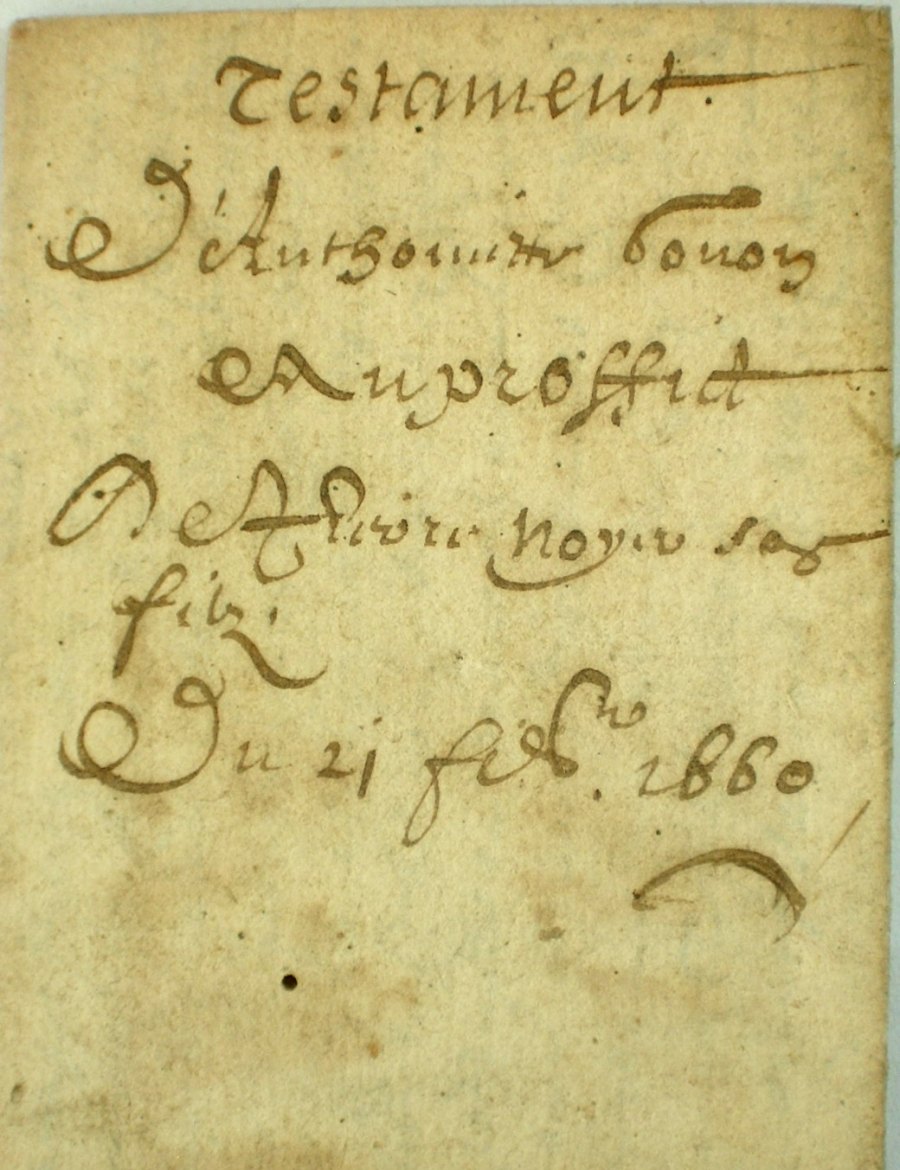 Testament.
D'Anthoinette bonon
Au proffict
De Pierre Noyer son
filz.
Du 21 febr. 1660